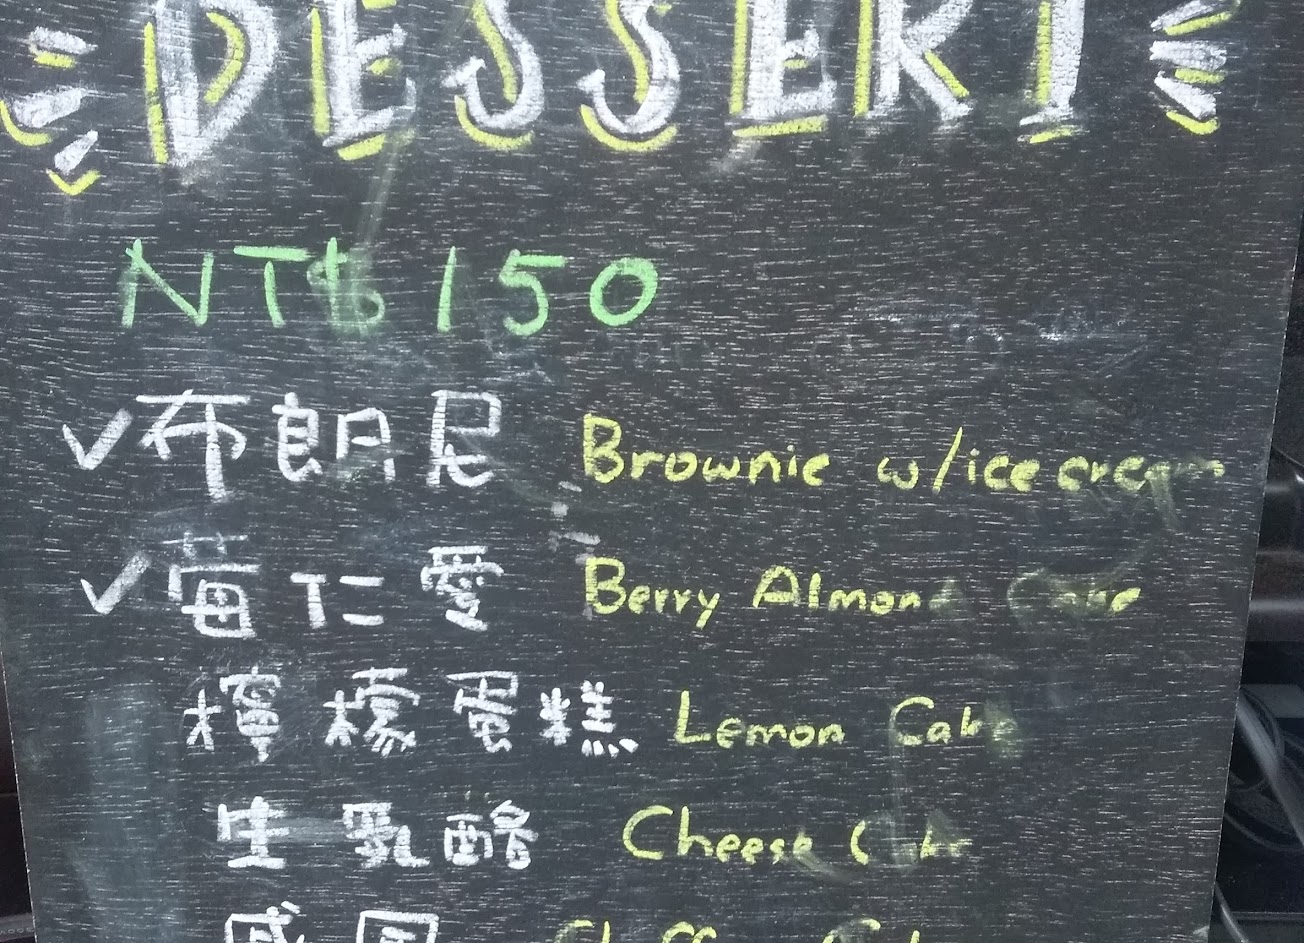 DESSERT
NT$150
✓布朗尼 Brownie w/ice cream
✓莓仁愛 Berry Almond Cake
檸檬蛋糕 Lemon Cake
生乳酪 Cheese Cake
戚風 Chiffon Cake